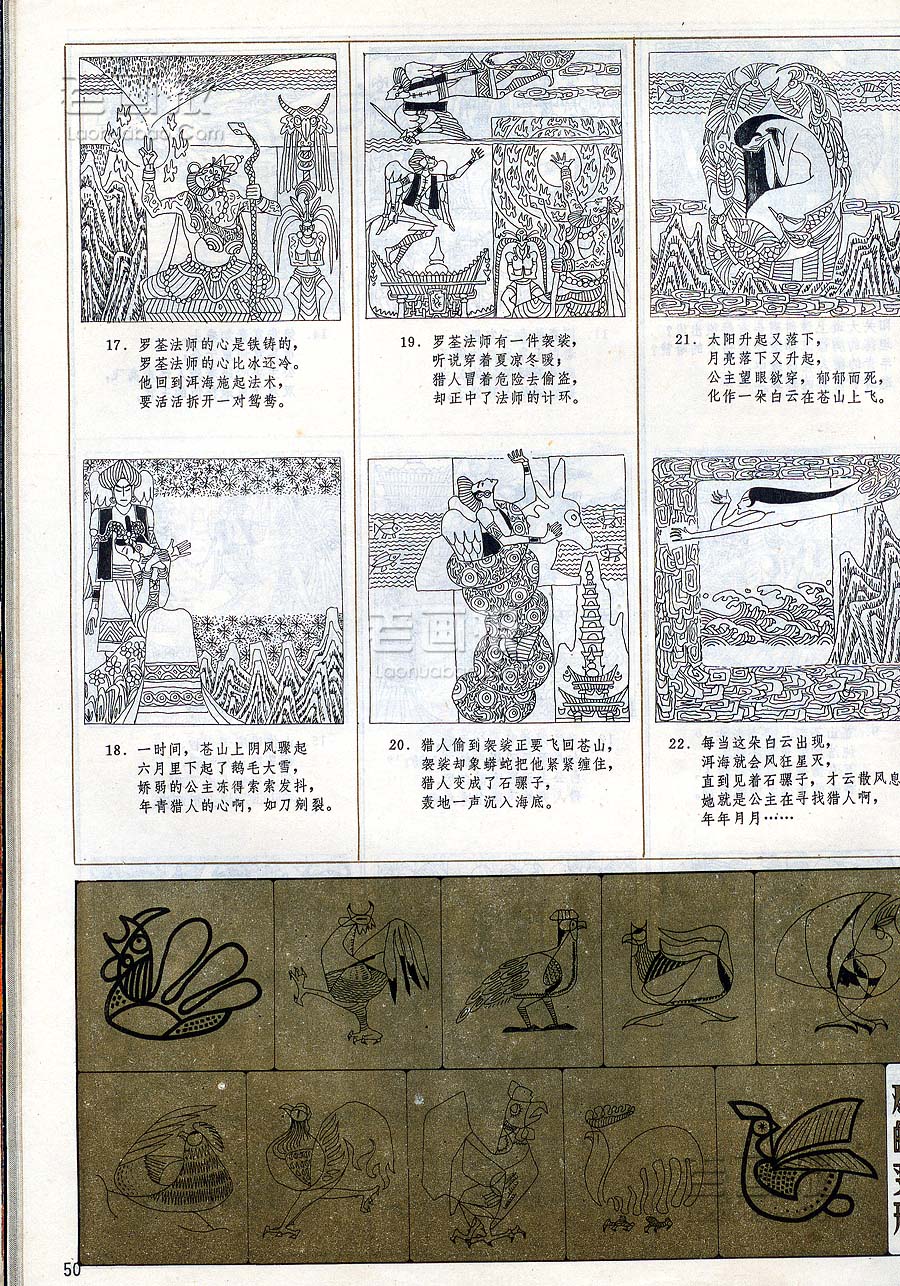 17. 罗荃法师的心是铁铸的,
罗荃法师的心比冰还冷。
他回到洱海施起法术,
要活活拆开一对鸳鸯。
18. 一时间,苍山上阴风骤起
六月里下起了鹅毛大雪,
娇弱的公主冻得索索发抖,
年肯猎人的心啊,如刀剜裂。
19. 罗荃法师有一件袈裟,
听说穿着夏凉冬暖,
猎人冒着危险去偷盗,
却正中了法师的计环。
20. 猎人偷到袈裟正要飞回苍山,
袈裟却象蟒蛇把他紧紧缠住,
猎人变成了石骡子,
轰地一声沉入海底。
21. 太阳升起又落下,
月亮落下又升起,
公主望眼欲穿,郁郁而死,
化作一朵白云在苍山上飞。
22. 每当这朵白云出现,
洱海就会风狂星灭,
直到见着石骡子,才云散风息
她就是公主在寻找猎人啊,
年年月月……
老画报
Laohuabao.Com
老画报
Laohuabao.Com
50